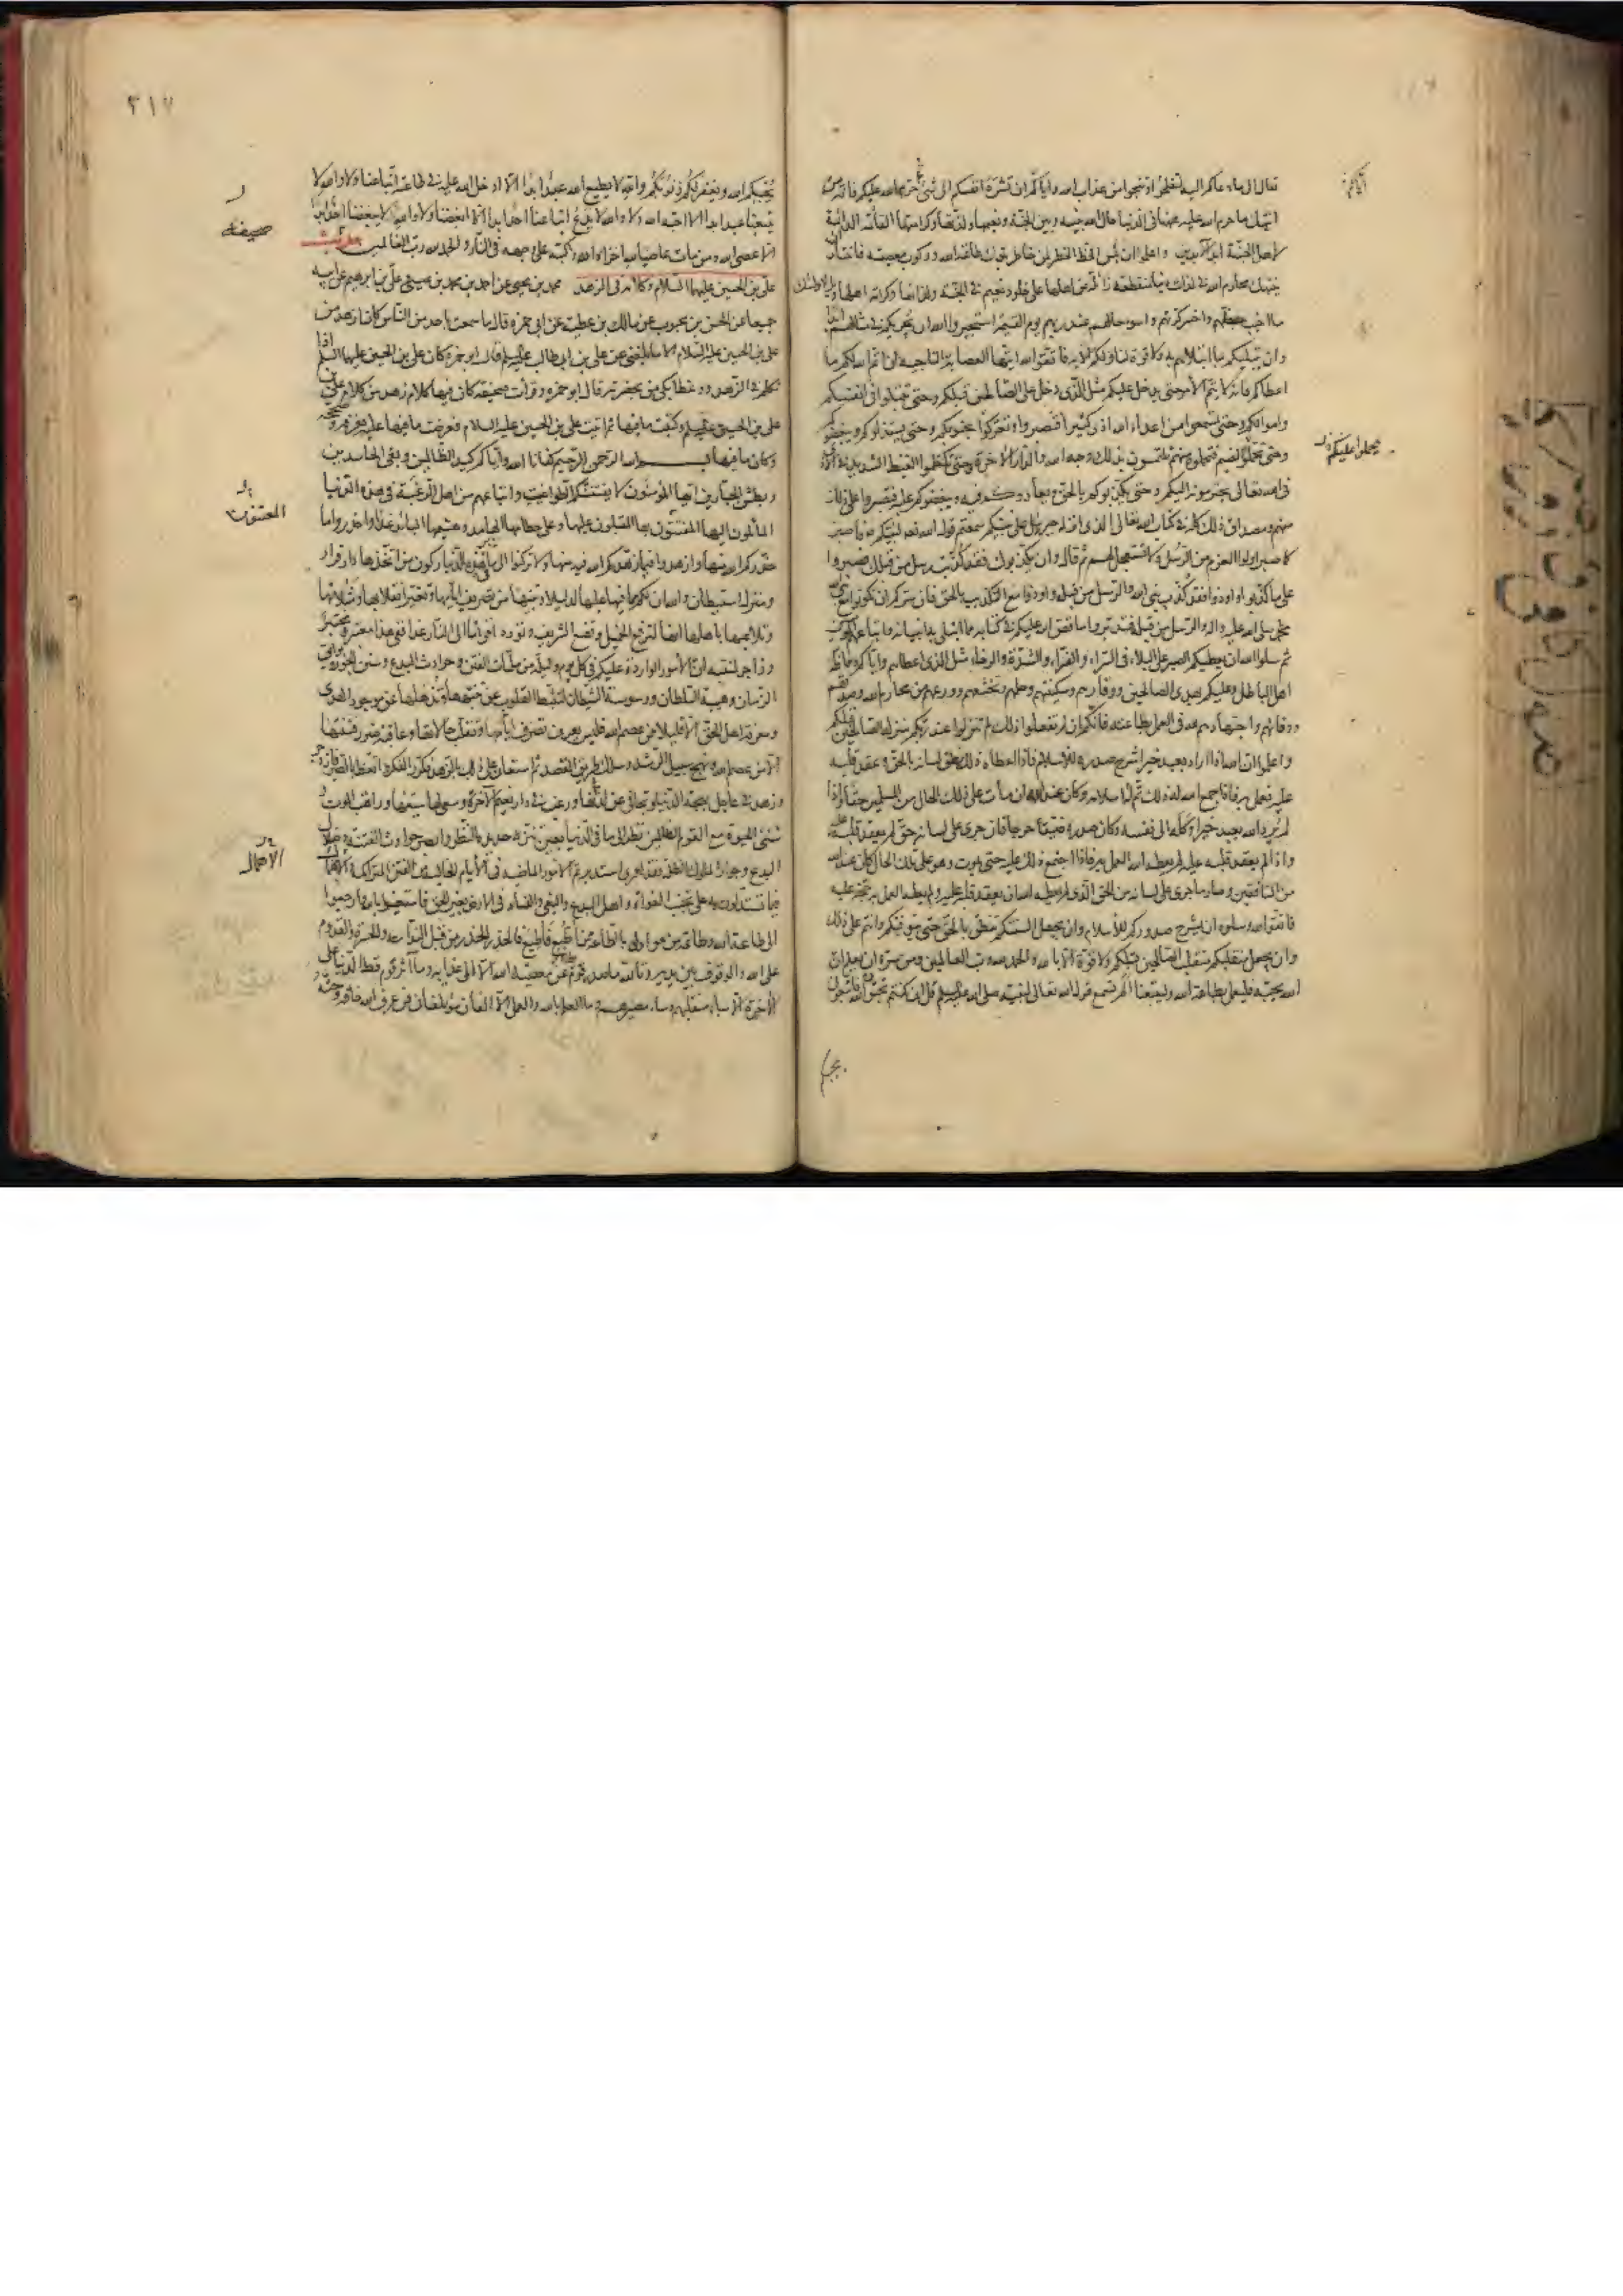 تعالى الى ما دعاكم اليه لتفلحوا وتنجوا من عذاب الله واياكم ان تشره انفسكم الى شئ مما حرم الله عليكم فانه من
انتهك ما حرم الله عليه ههنا فى الدنيا حال الله بينه وبين الجنة ونعيمها ولذتها وكرامتها القائمة الدائمة
لاهل الجنة ابد الآبدين واعلموا ان بئس الحظ الخطر لمن خاطر بترك طاعة الله وركوب معصيته فاختار ان
ينتهك محارم الله فى لذات دنيا منقطعة زائلة عن اهلها على خلود نعيم فى الجنة ولذاتها وكرامة اهلها ويل لاولئك
ما اخيب حظهم واخسر كرتهم واسوء حالهم عند ربهم يوم القيمة استجيروا الله ان يجريكم فى مثالهم ابدا
وان يبتليكم بما ابتلاهم به ولا قوة لنا ولكم الا به فاتقوا الله ايتها العصابة الناجية ان اتم الله لكم ما
اعطاكم فانه لا يتم الامر حتى يدخل عليكم مثل الذى دخل على الصالحين قبلكم وحتى تبتلوا فى انفسكم
واموالكم وحتى تسمعوا من اعداء الله اذى كثيرا فتصبروا وتعركوا بجنوبكم وحتى يستذلوكم ويبغضوكم
وحتى يحملوا الضيم فتحملوه منهم تلتمسون بذلك وجه الله والدار الاخرة وحتى تكظموا الغيظ الشديد فى الاذى
فى الله تعالى يجترمونه اليكم وحتى يكذبوكم بالحق ويعادوكم فيه ويبغضوكم عليه فتصبروا على ذلك
منهم ومصداق ذلك كله فى كتاب الله تعالى الذى انزله جبريل على نبيكم سمعتم قول الله لنبيكم فاصبر
كما صبر اولوا العزم من الرسل ولا تستعجل لهم ثم قال وان يكذبوك فقد كذبت رسل من قبلك فصبروا
على ما كذبوا واوذوا فقد كذب نبى الله والرسل من قبله واوذوا مع التكذيب بالحق فان سركم ان تكونوا مع نبى الله
محمد صلى الله عليه واله والرسل من قبله فتدبروا ما قص الله عليكم فى كتابه مما ابتلى به انبياءه واتباعهم المؤمنين
ثم سلوا الله ان يعطيكم الصبر على البلاء فى السراء والضراء والشدة والرخاء مثل الذى اعطاهم واياكم ومماظة
اهل الباطل وعليكم بهدى الصالحين ووقارهم وسكينتهم وحلمهم وتخشعهم وورعهم عن محارم الله وصدقهم
ووفائهم واجتهادهم لله فى العمل بطاعته فانكم ان لم تفعلوا ذلك لم تنزلوا عند ربكم منزلة الصالحين قبلكم
واعلموا ان الله اذا اراد بعبد خيرا شرح صدره للاسلام فاذا اعطاه ذلك نطق لسانه بالحق وعقد قلبه
عليه فعمل به فاذا جمع الله له ذلك تم له اسلامه وكان عند الله ان مات على ذلك الحال من المسلمين حقا واذا
لم يرد الله بعبد خيرا وكله الى نفسه وكان صدره ضيقا حرجا فان جرى على لسانه حق لم يعقد قلبه عليه
واذا لم يعقد قلبه عليه لم يعطه الله العمل به فاذا اجتمع ذلك عليه حتى يموت وهو على تلك الحال كان عند الله
من المنافقين وصار ما جرى على لسانه من الحق الذى لم يعطه الله ان يعقد قلبه عليه ولم يعطه العمل به حجة عليه
فاتقوا الله وسلوه ان يشرح صدوركم للاسلام وان يجعل السنتكم تنطق بالحق حتى يتوفيكم وانتم على ذلك
وان يجعل منقلبكم منقلب الصالحين قبلكم ولا قوة الا بالله والحمد لله رب العالمين ومن سره ان يعلم ان
الله يحبه فليعمل بطاعة الله وليتبعنا الم تسمع قول الله تعالى لنبيه صلى الله عليه وسلم قل ان كنتم تحبون الله فاتبعونى
يحملوا عليكم
٣١٧
يحببكم الله ويغفر لكم ذنوبكم والله لا يطيع الله عبد ابدا الا ادخل الله عليه فى طاعته اتباعنا ولا والله لا
يتبعنا عبد ابدا الا احبه الله ولا والله لا يدع اتباعنا احد ابدا الا ابغضنا ولا والله لا يبغضنا احد ابدا
الا عصى الله ومن مات عاصيا لله اخزاه الله واكبه على وجهه فى النار والحمد لله رب العالمين
على بن الحسين عليهما السلام وكلامه فى الزهد محمد بن يحيى عن احمد بن محمد بن عيسى وعلى بن ابرهيم عن ابيه
جميعا عن الحسن بن محبوب عن مالك بن عطية عن ابى حمزة قال ما سمعت باحد من الناس كان ازهد من
على بن الحسين عليه السلام الا ما بلغنى عن على بن ابى طالب عليه السلام قال ابو حمزة كان على بن الحسين عليهما السلم اذا
تكلم فى الزهد ووعظ ابكى من بحضرته قال ابو حمزة وقرأت صحيفة كان فيها كلام زهد من كلام
على بن الحسين عليه السلم وكتبت ما فيها ثم اتيت على بن الحسين عليه السلام فعرضت ما فيها عليه فعرفه وصححه
وكان ما فيها بسم الله الرحمن الرحيم كفانا الله واياكم كيد الظالمين وبغى الحاسدين
وبطش الجبارين ايها المؤمنون لا يفتننكم الطواغيت واتباعهم من اهل الرغبة فى هذه الدنيا
المائلون اليها المفتنون بها المقبلون عليها وعلى حطامها الهامد وهشيمها البائد غدا واحذروا ما
حذركم الله منها وازهدوا فيما زهدكم الله فيه منها ولا تركنوا الى ما فى هذه الدنيا ركون من اتخذها دار قرار
ومنزل استيطان والله ان لكم مما فيها عليها لدليلا وتنبيها من تصريف ايامها وتغير انقلابها ومثلاتها
وتلاعبها باهلها انها لترفع الخميل وتضع الشريف وتورد اقواما الى النار غدا ففى هذا معتبر ومختبر
وزاجر لمنتبه ان الامور الواردة عليكم فى كل يوم وليلة من مظلمات الفتن وحوادث البدع وسنن الجور وبوائق
الزمان وهيبة السلطان ووسوسة الشيطان لتثبط القلوب عن تنبهها وتذهلها عن موجود الهدى
ومعرفة اهل الحق الا قليلا ممن عصم الله فليس يعرف تصرف ايامها وتقلب حالاتها وعاقبة ضرر فتنتها
الا من عصم الله ونهج سبيل الرشد وسلك طريق القصد ثم استعان على ذلك بالزهد فكرر الفكر واتعظ بالصبر فازدجر
وزهد فى عاجل بهجة الدنيا وتجافى عن لذتها ورغب فى دائم نعيم الآخرة وسعى لها سعيها وراقب الموت
وشنئ الحيوة مع القوم الظالمين نظر الى ما فى الدنيا بعين نيرة حديدة النظر وابصر حوادث الفتن وضلال
البدع وجور الملوك الظلمة فقد لعمرى استدبرتم الامور الماضية فى الايام الخالية من الفتن المتراكمة والانهماك
فيما تستدلون به على تجنب الغواة واهل البدع والبغى والفساد فى الارض بغير الحق فاستعينوا بالله وارجعوا
الى طاعة الله وطاعة من هو اولى بالطاعة ممن اتبع فاطيع فالحذر الحذر من قبل الندامة والحسرة والقدوم
على الله والوقوف بين يديه وتالله ما صدر قوم قط عن معصية الله الا الى عذابه وما آثر قوم قط الدنيا على
الآخرة الا ساء منقلبهم وساء مصيرهم وما العلم بالله والعمل الا الفان مؤتلفان فمن عرف الله خافه وحثه
صحيفة
المفتنون